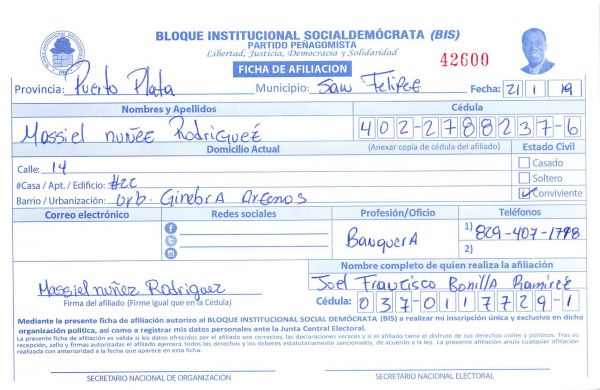 BLOQUE INSTITUCIONAL SOCIALDEMÓCRATA (BIS)
PARTIDO PEÑAGOMISTA
Libertad, Justicia, Democracia y Solidaridad
FICHA DE AFILIACION
42600
Provincia: Puerto Plata Municipio: San Felipe Fecha: 21 1 19
Nombres y Apellidos Cédula
Massiel nuñez Rodriguez 402-2788237-6
Domicilio Actual (Anexar copia de cédula del afiliado) Estado Civil
Calle: 14 Casado
#Casa / Apt. / Edificio: #2C Soltero
Barrio / Urbanización: Urb. Ginebra Arenos Conviviente
Correo electrónico Redes sociales Profesión/Oficio Teléfonos
Banquera 1) 829-407-1798
2)
Nombre completo de quien realiza la afiliación
Massiel nuñez Rodriguez Joel Francisco Bonilla Ramirez
Firma del afiliado (Firme igual que en la Cédula) Cédula: 037-0117729-1
Mediante la presente ficha de afiliación autorizo al BLOQUE INSTITUCIONAL SOCIAL DEMÓCRATA (BIS) a realizar mi inscripción única y exclusiva en dicha
organización política, así como a registrar mis datos personales ante la Junta Central Electoral.
La presente ficha de afiliación es valida si los datos ofrecidos por el afiliado son correctos, las declaraciones veraces y si el afiliado tiene el disfrute de sus derechos civiles y políticos. Tras su
recepción, sello y firmas autorizadas el afiliado ejercerá todos los derechos y los deberes estatutariamente sancionados, de acuerdo a la ley. La presente afiliación anula cualquier afiliación
realizada con anterioridad a la fecha que aparece en esta ficha.
SECRETARIO NACIONAL DE ORGANIZACIÓN SECRETARIO NACIONAL ELECTORAL